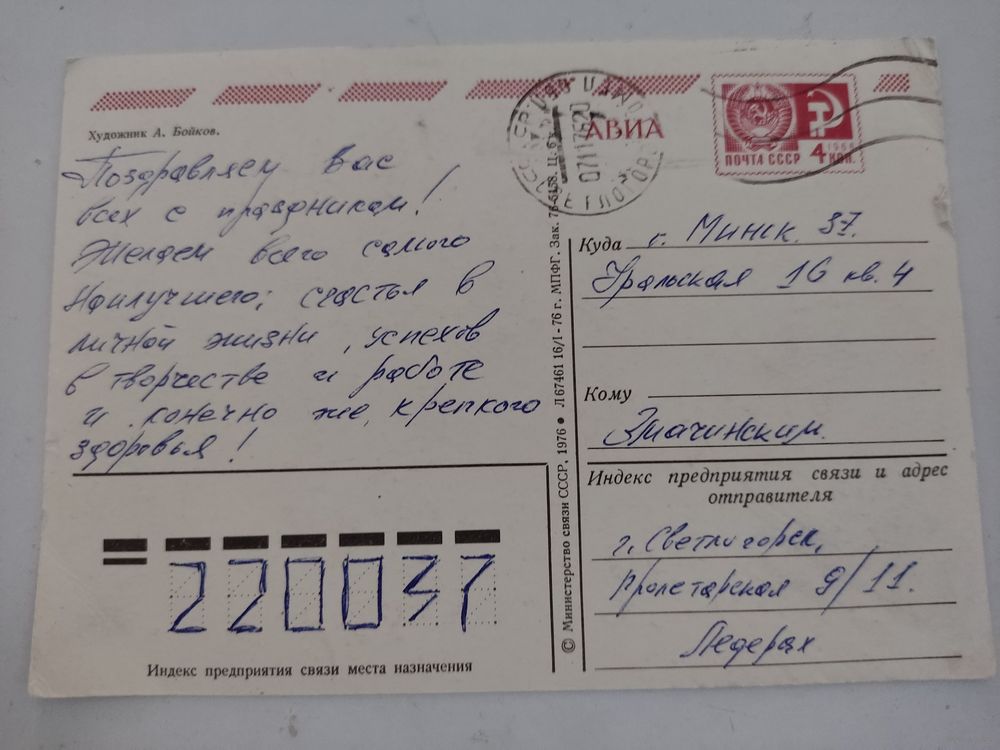 Художник А. Бойков.
АВИА
ПОЧТА СССР
4 КОП.
1966
Поздравляем Вас
всех с праздником!
Желаем всего самого
наилучшего; счастья в
личной жизни, успехов
в творчестве и работе
и конечно же, крепкого
здоровья!
Куда г. Минск 37.
Уральская 16 кв. 4
Кому
Змачинским.
Индекс предприятия связи и адрес
отправителя
г. Светлогорск,
Пролетарская 9/11.
Ледерах
220037
Индекс предприятия связи места назначения
© Министерство связи СССР, 1976 ● Л67461 16/I-76 г. МПФГ. Зак. 76-5158. Ц. 6 к.